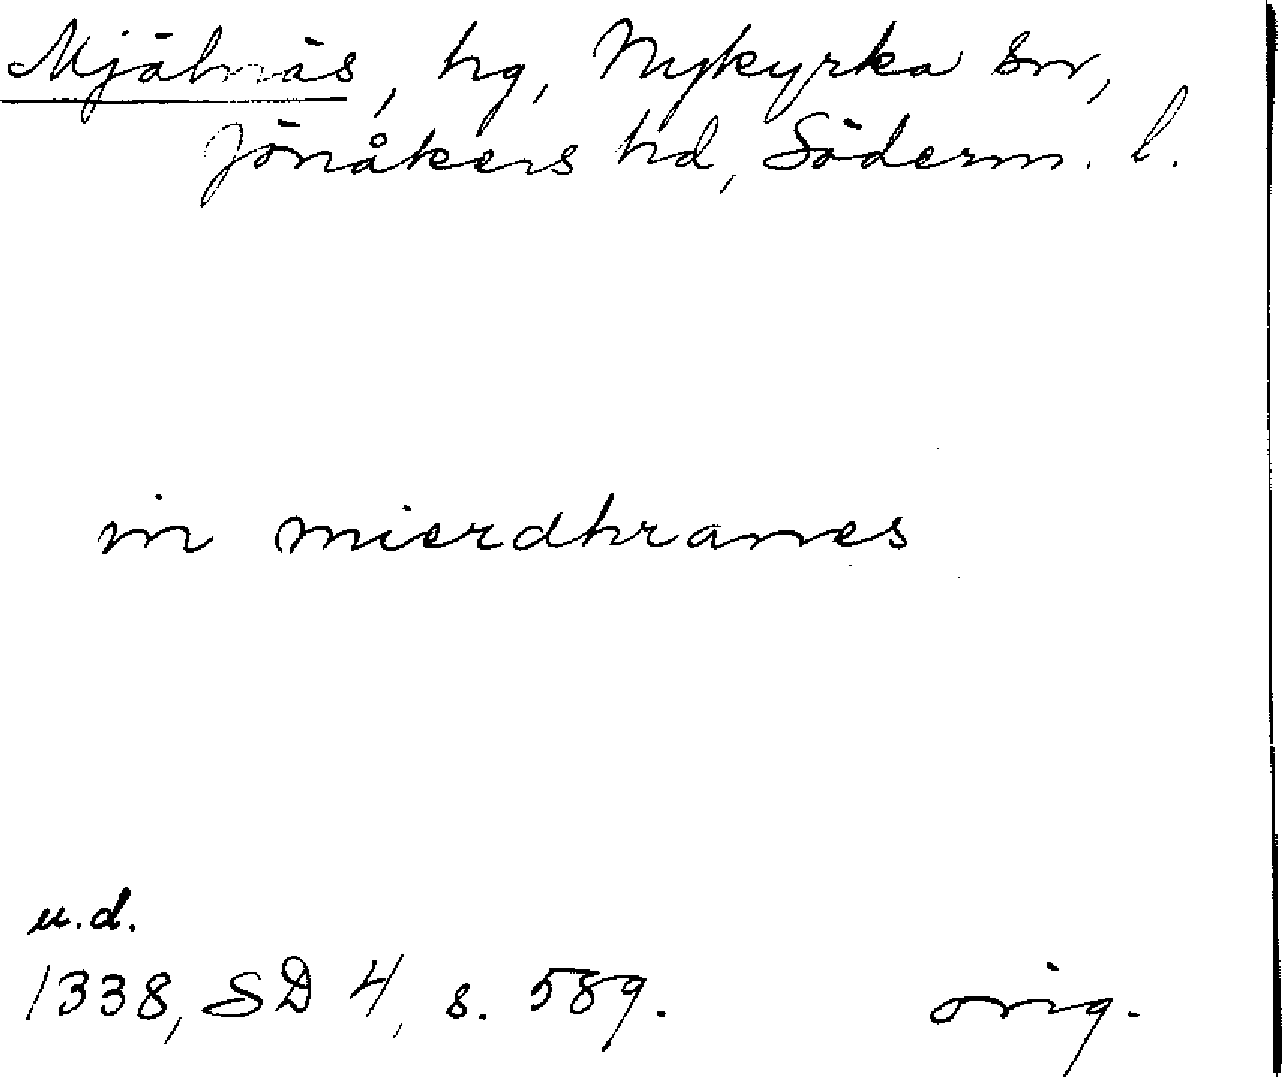 Mjälnäs, hg, Nykyrka sn,
Jönåkers hd, Söderm. l.
in mierdhranes
u.d.
1338, SD 4, s. 589. orig.